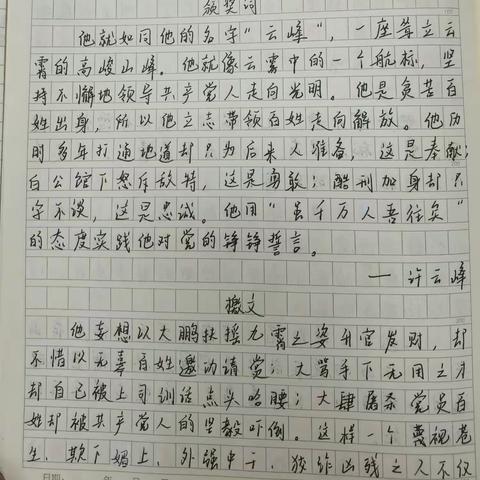 颁奖词
他就如同他的名字“云峰”，一座耸立云
霄的高峻山峰。他就像云雾中的一个航标，坚
持不懈地领导共产党人走向光明。他是贫苦百
姓出身，所以他立志带领百姓走向解放。他历
时多年打通地道却只为后来人准备，这是奉献；
白公馆下怒斥敌特，这是勇敢；酷刑加身却只
字不谈，这是忠诚。他用“虽千万人吾往矣”
的态度实践他对党的铮铮誓言。
—许云峰
檄文
他妄想以大鹏扶摇九霄之姿升官发财，却
不惜以无辜百姓邀功请赏；大骂手下无用之才
却自己被上司训话点头哈腰；大肆屠杀党员百
姓却被共产党人的坚毅吓倒。这样一个蔑视苍
生、欺下媚上、外强中干、狡诈凶残之人不仅
日期：